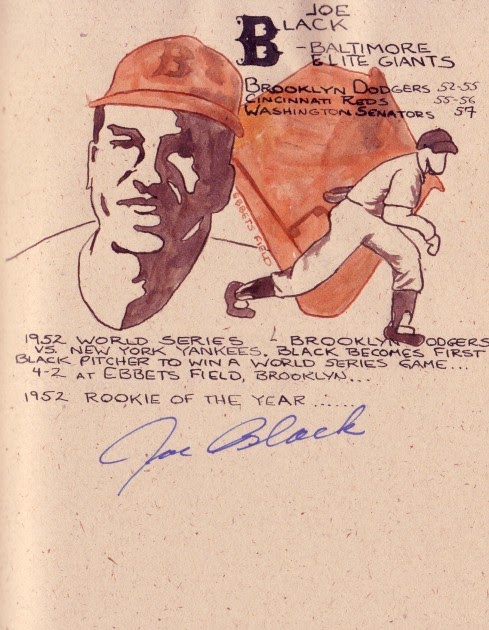 JOE
BLACK
B
- BALTIMORE
ELITE GIANTS
BROOKLYN DODGERS 52-55
CINCINNATI REDS 55-56
WASHINGTON SENATORS 57
EBBETS FIELD
1952 WORLD SERIES - BROOKLYN DODGERS
VS. NEW YORK YANKEES. BLACK BECOMES FIRST
BLACK PITCHER TO WIN A WORLD SERIES GAME...
4-2 AT EBBETS FIELD, BROOKLYN...
1952 ROOKIE OF THE YEAR ......
Joe Black